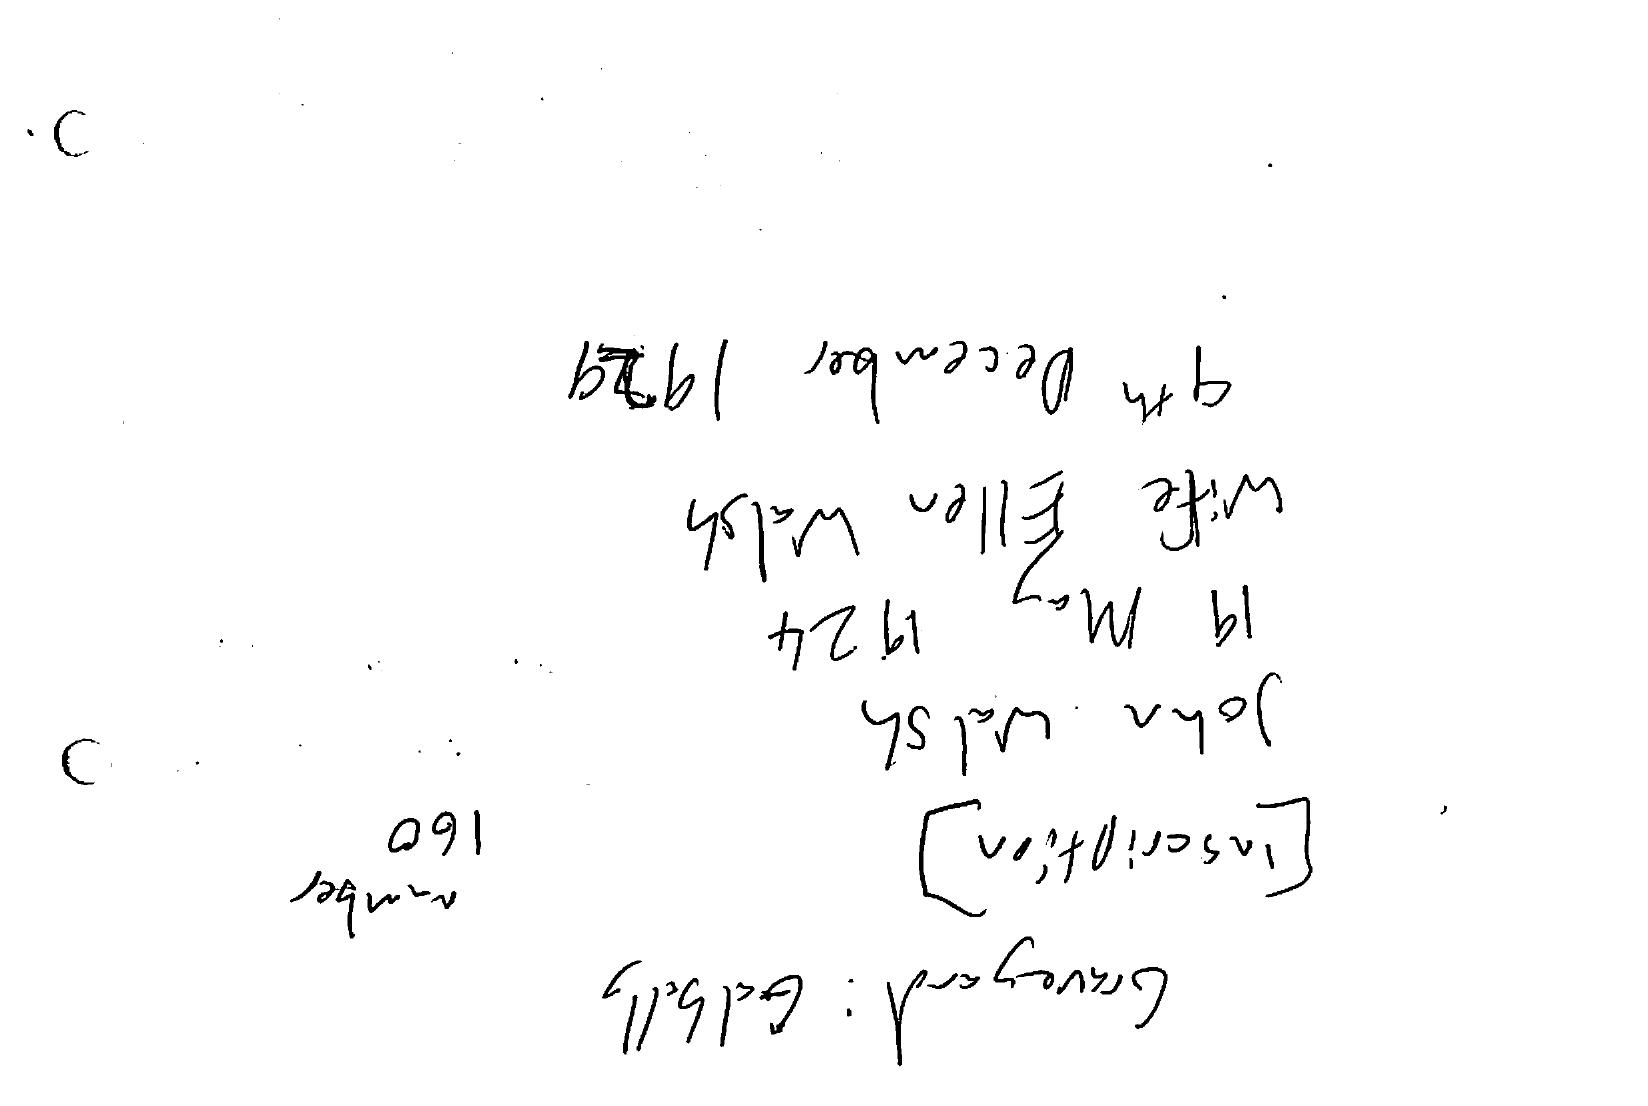 Graveyard: Galbally
number
160
[inscription]
John Walsh
19 May 1924
Wife Ellen Walsh
9th December 1929